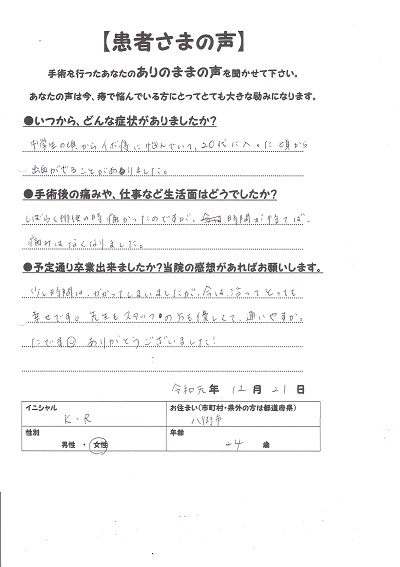 【患者さまの声】
手術を行ったあなたのありのままの声を聞かせて下さい。
あなたの声は今、痔で悩んでいる方にとってとても大きな励みになります。
●いつから、どんな症状がありましたか?
中学生の頃からイボ痔に悩んでいて、20代に入った頃から
出血がでることがありました。
●手術後の痛みや、仕事など生活面はどうでしたか?
しばらく排便の時痛かったのですが、時間が経てば
痛みはなくなりました。
●予定通り卒業出来ましたか?当院の感想があればお願いします。
少し時間は、かかってしまいましたが、今は治ってとっても
幸せです。先生もスタッフの方も優しくて、通いやすかっ
たです☺ ありがとうございました!
令和元年 12月 21日
イニシャル
K・R
お住まい(市町村・県外の方は都道府県)
性別
男性 ・ 女性
年齢
24 歳